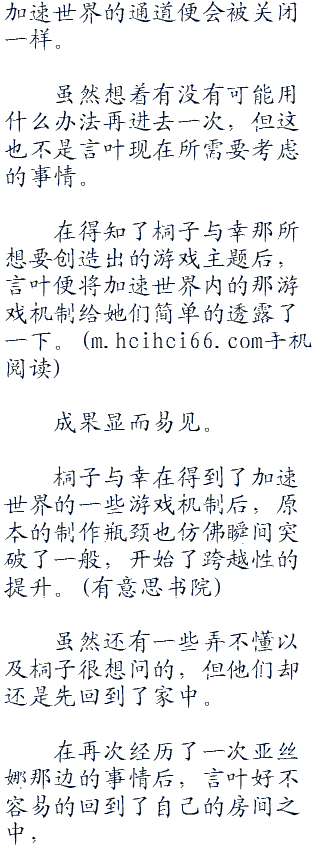 加速世界的通道便会被关闭
一样。
虽然想着有没有可能用
什么办法再进去一次，但这
也不是言叶现在所需要考虑
的事情。
在得知了桐子与幸那所
想要创造出的游戏主题后，
言叶便将加速世界内的那游
戏机制给她们简单的透露了
一下。（m.hcihci66.com手机
阅读）
成果显而易见。
桐子与幸在得到了加速
世界的一些游戏机制后，原
本的制作瓶颈也仿佛瞬间突
破了一般，开始了跨越性的
提升。（有意思书院）
虽然还有一些弄不懂以
及桐子很想问的，但他们却
还是先回到了家中。
在再次经历了一次亚丝
娜那边的事情后，言叶好不
容易的回到了自己的房间之
中，